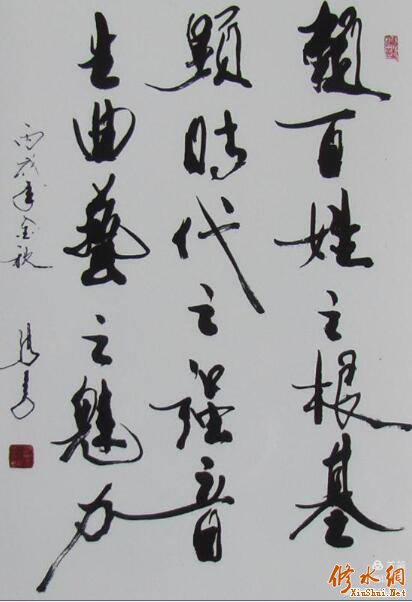 百姓之根基
顯時代之强音
生曲藝之魅力
丙戌年金秋
修水網
XinShui.Net